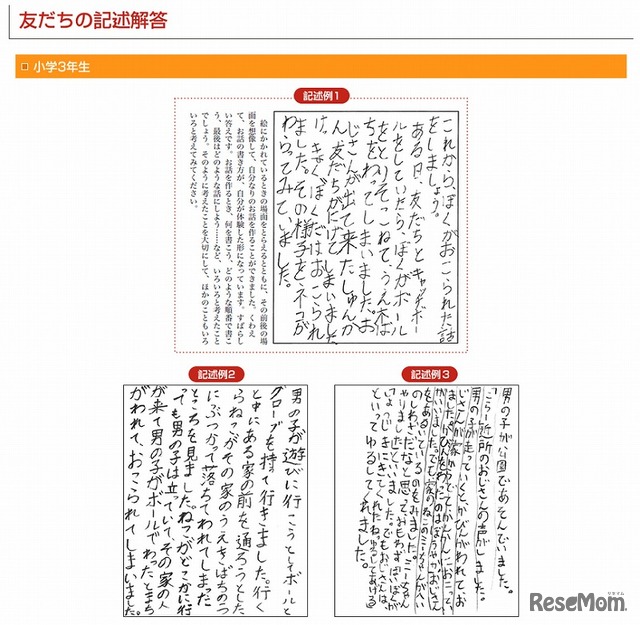 友だちの記述解答
小学3年生
記述例1
これから、ぼくがおこられた話
をしましょう。
ある日、友だちとキャッチボー
ルをしていたら、ぼくがボール
をとりそこねて、うえ木ば
ちをわってしまいました。お
じさんが出て来たしゅんか
ん、友だちがにげてしまいました
けっきょくぼくだけはおこられ
ました。その様子をネコが
わらってみていました。
絵にかかれているときの場面をとらえるとともに、その前後の場
面を想像して、自分なりのお話を作ることができました。くわえ
て、お話の書き方が、自分が体験した形になっています。すばらし
い答えです。お話を作るとき、何を書こう、どのような順番で書こ
う、最後はどのような話にしよう……など、いろいろと考えたこと
でしょう。そのように考えたことを大切にして、ほかのこともいろ
いろと考えてみてください。
記述例2
男の子が遊びに行こうとしてボールと
グローブを持って行きました。行く
と中にある家の前を通ろうとした
らねこがその家のうえきばちの
にぶつかって落ちてわれてしまった
ところを見ました。ねこがどこかに行
っても男の子は立っていて、その家の人
が来て男の子がボールでわったとまち
がわれて、おこられてしまいました。
記述例3
男の子が公園であそんでいました。
「こらー」近所のおじさんの声がしました。
男の子が走っていくとかびんがわれて、お
じさんが家からでてかんかんにおこってい
ました。かびんをわったのはぼうやかおじさん
がいいました。でも、家のねこのミーちゃんがへい
をあるいているのをみました。ミーちゃん
のしわざだなと思って、おもわず「ぼくが
やりました」といいました。でもおじさんは、
「しょうじきにきてくれたねゆるしてあげる」
といってゆるしてくれました。
ReseMom.
リセマム